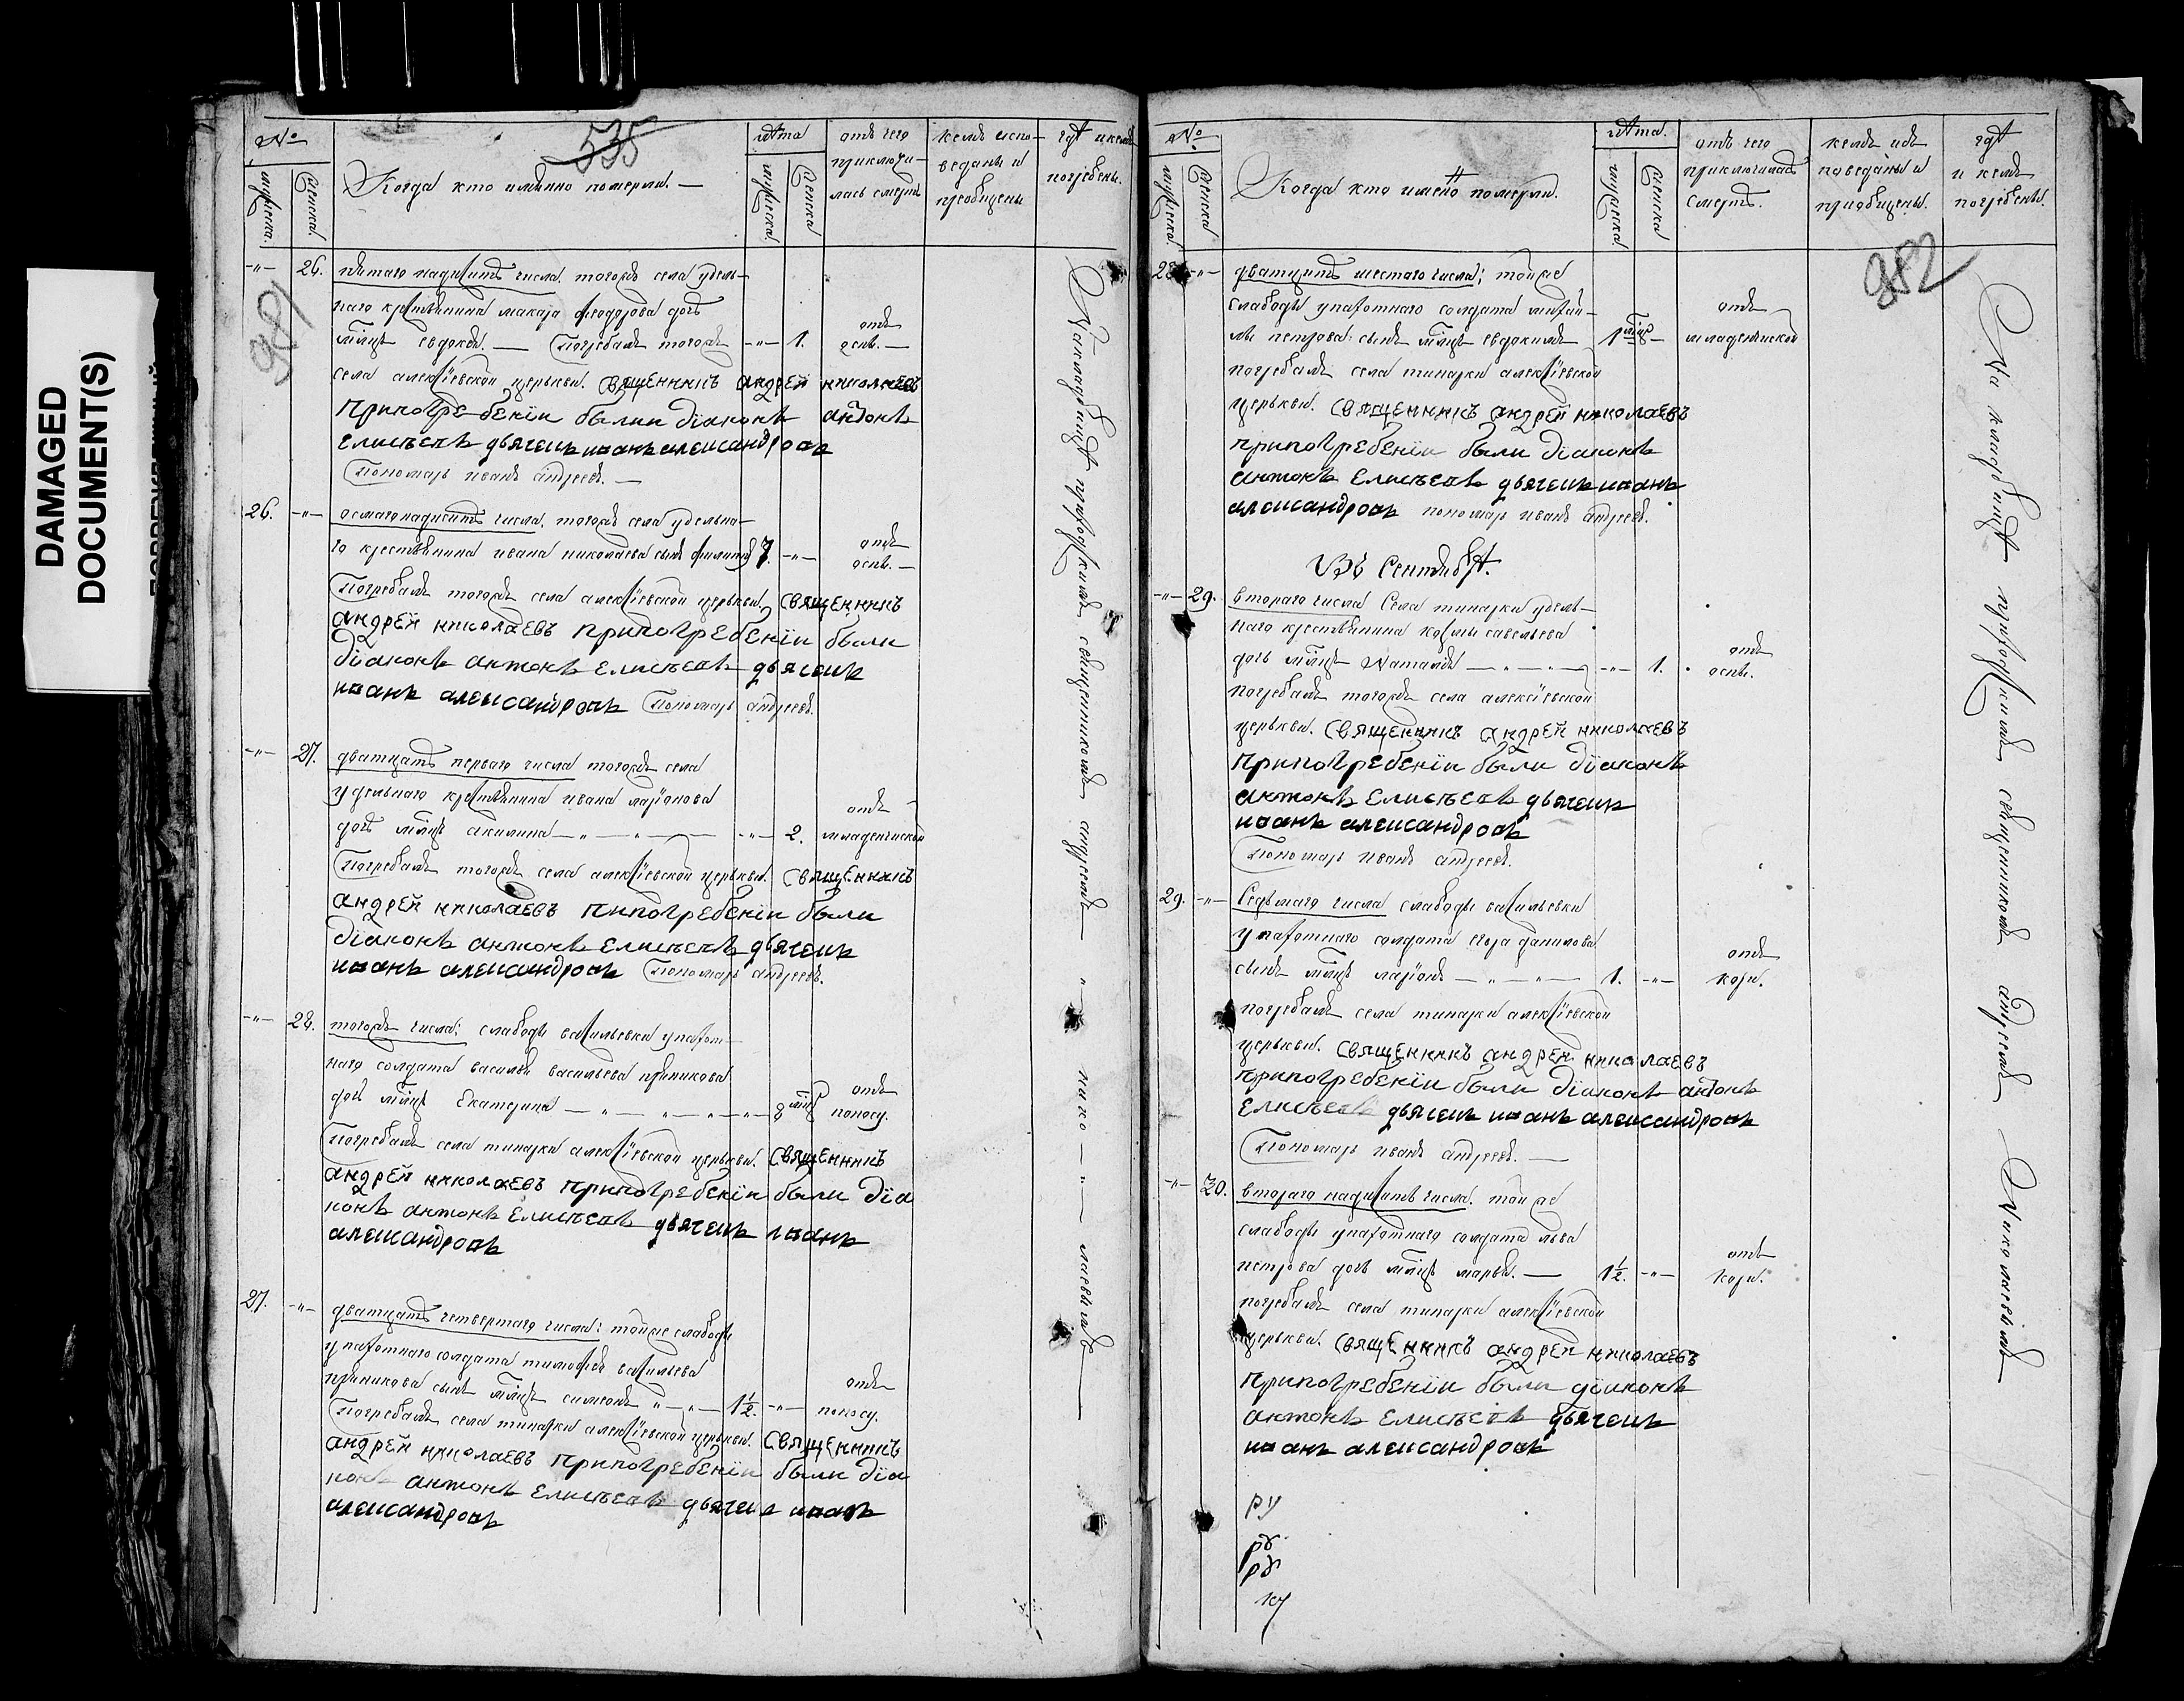 DAMAGED
DOCUMENT(S)
535
981
№
мужеска.
женска.
Когда кто имянно померли. —
лѣта
мужеска.
женска
отъ чего
приключи-
лась смерть
кемъ испо-
веданы и
преобщены
гдѣ и кемъ
погребены.
-"- 26. пятаго надесять числа. тогожъ села удель-
наго крестьянина макара феодорова дочь
млнц евдокия. — Погребалъ тогожъ -"- 1. отъ оспы. —
села алексiевской церькви. священникъ андрей николаевъ
припогребенiи были дiаконъ антонъ
елисѣевъ дьячекъ иванъ александровъ
Пономарь иванъ андреевъ. —
26. -"- осмагонадесять числа. тогожъ села удельна-
го крестьянина ивана николаева сынъ филиппъ 7. -"- отъ оспы. —
Погребалъ тогожъ села алексiевской церькви. священникъ
андрей николаевъ припогребенiи были
дiаконъ антонъ елисѣевъ дьячекъ
иванъ александровъ Пономарь андреевъ.
-"- 27. дватцать перваго числа тогожъ села
удельнаго крестьянина ивана ларiонова
дочь млнц акилина — " — " — -"- 2. отъ младенческой
Погребалъ тогожъ села алексiевской церькви. священникъ
андрей николаевъ пипогребенiи были
дiаконъ антонъ елисѣевъ дьячекъ
иванъ александровъ Пономарь андреевъ.
-"- 28. тогожъ числа: слабоды васильевки упахот-
наго солдата василья васильева
дочь млнц Екатерина — " — " — " — " — 8 отъ поносу.
Погребалъ села тинарки алексiевской церькви. священникъ
андрей николаевъ припогребенiи были дiа
конъ антонъ елисѣевъ дьячекъ иванъ
александровъ
27. -"- дватцать четвертаго числа: тойже слабоды
упахотнаго солдата тимофея васильева
сынъ млнц симеонъ " — " — 1½. -"- отъ поносу.
Погребалъ села тинарки алексiевской церькви. священникъ
андрей николаевъ припогребенiи были дiа
конъ антонъ елисѣевъ дьячекъ иванъ
александровъ
На кладбищѣ приходскимъ священникомъ андреемъ — " — нико — " — лаевымъ
982
№
мужеска
женска
Когда кто имено померли.
лѣта.
мужеска
женска
отъ чего
приключилась
смерть.
кемъ ис
поведаны и
приобщены.
гдѣ
и кемъ
погребены.
28. -"- дватцать шестаго числа; тойже
слабоды упахотнаго солдата
петрова сынъ млнц евдокимъ 1 отъ младенческой
погребалъ села тинарки алексiевской
церькви. священникъ андрей николаевъ
припогребенiи были дiаконъ
антонъ елисѣевъ дьячекъ иванъ
александровъ пономарь иванъ андреевъ.
Въ Сентябрѣ.
-"- 29. втораго числа Села тинарки удель-
наго крестьянина козмы савельева
дочь млнц Наталия — " — " — -"- 1. отъ оспы.
погребалъ тогожъ села алексiевской
церькви. священникъ андрей николаевъ
припогребенiи были дiаконъ
антонъ елисѣевъ дьячекъ
иванъ александровъ
Пономарь иванъ андреевъ.
29. -"- Седьмаго числа слабоды васильевки
упахотнаго солдата егора данилова
сынъ млнц ларiонъ — " — " — 1. -"- отъ кори.
погребалъ села тинарки алексiевской
церькви. священникъ андрей николаевъ
припогребенiи были дiаконъ антонъ
елисѣевъ дьячекъ иванъ александровъ
Пономарь иванъ андреевъ. —
-"- 30. втораго надесять числа. тойже
слабоды упахотнаго солдата льва
петрова дочь млнц марья. — 1½. -"- отъ кори.
погребалъ села тинарки алексiевской
церькви. священникъ андрей николаевъ
припогребенiи были дiаконъ
антонъ елисѣевъ дьячекъ
иванъ александровъ
ру
рꙋ
рꙋ
На кладбищѣ приходскимъ священникомъ андреемъ Николаевымъ